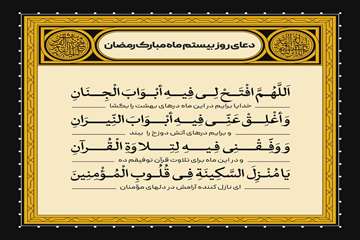 دعای روز بیستم ماه مبارک رمضان
اَللّهُمَّ افْتَحْ لی فیهِ اَبْوَابَ الْجِنَانِ
خدایا برایم در این ماه درهای بهشت را بگشا
وَ اَغْلِقْ عَنّی فیهِ اَبْوَابَ النّیرَانِ
و برایم درهای آتش دوزخ را ببند
وَ وَفِّقْنی فیهِ لِتِلَاوَةِ الْقُرآنِ
و در این ماه برای تلاوت قرآن توفیقم ده
یَا مُنْزِلَ السَّکینَةِ فی قُلُوبِ الْمُؤْمِنینَ
ای نازل کننده آرامش در دلهای مؤمنان